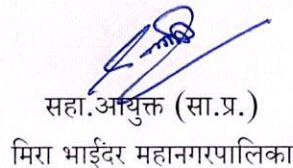 सहा.आयुक्त (सा.प्र.)
मिरा भाईंदर महानगरपालिका